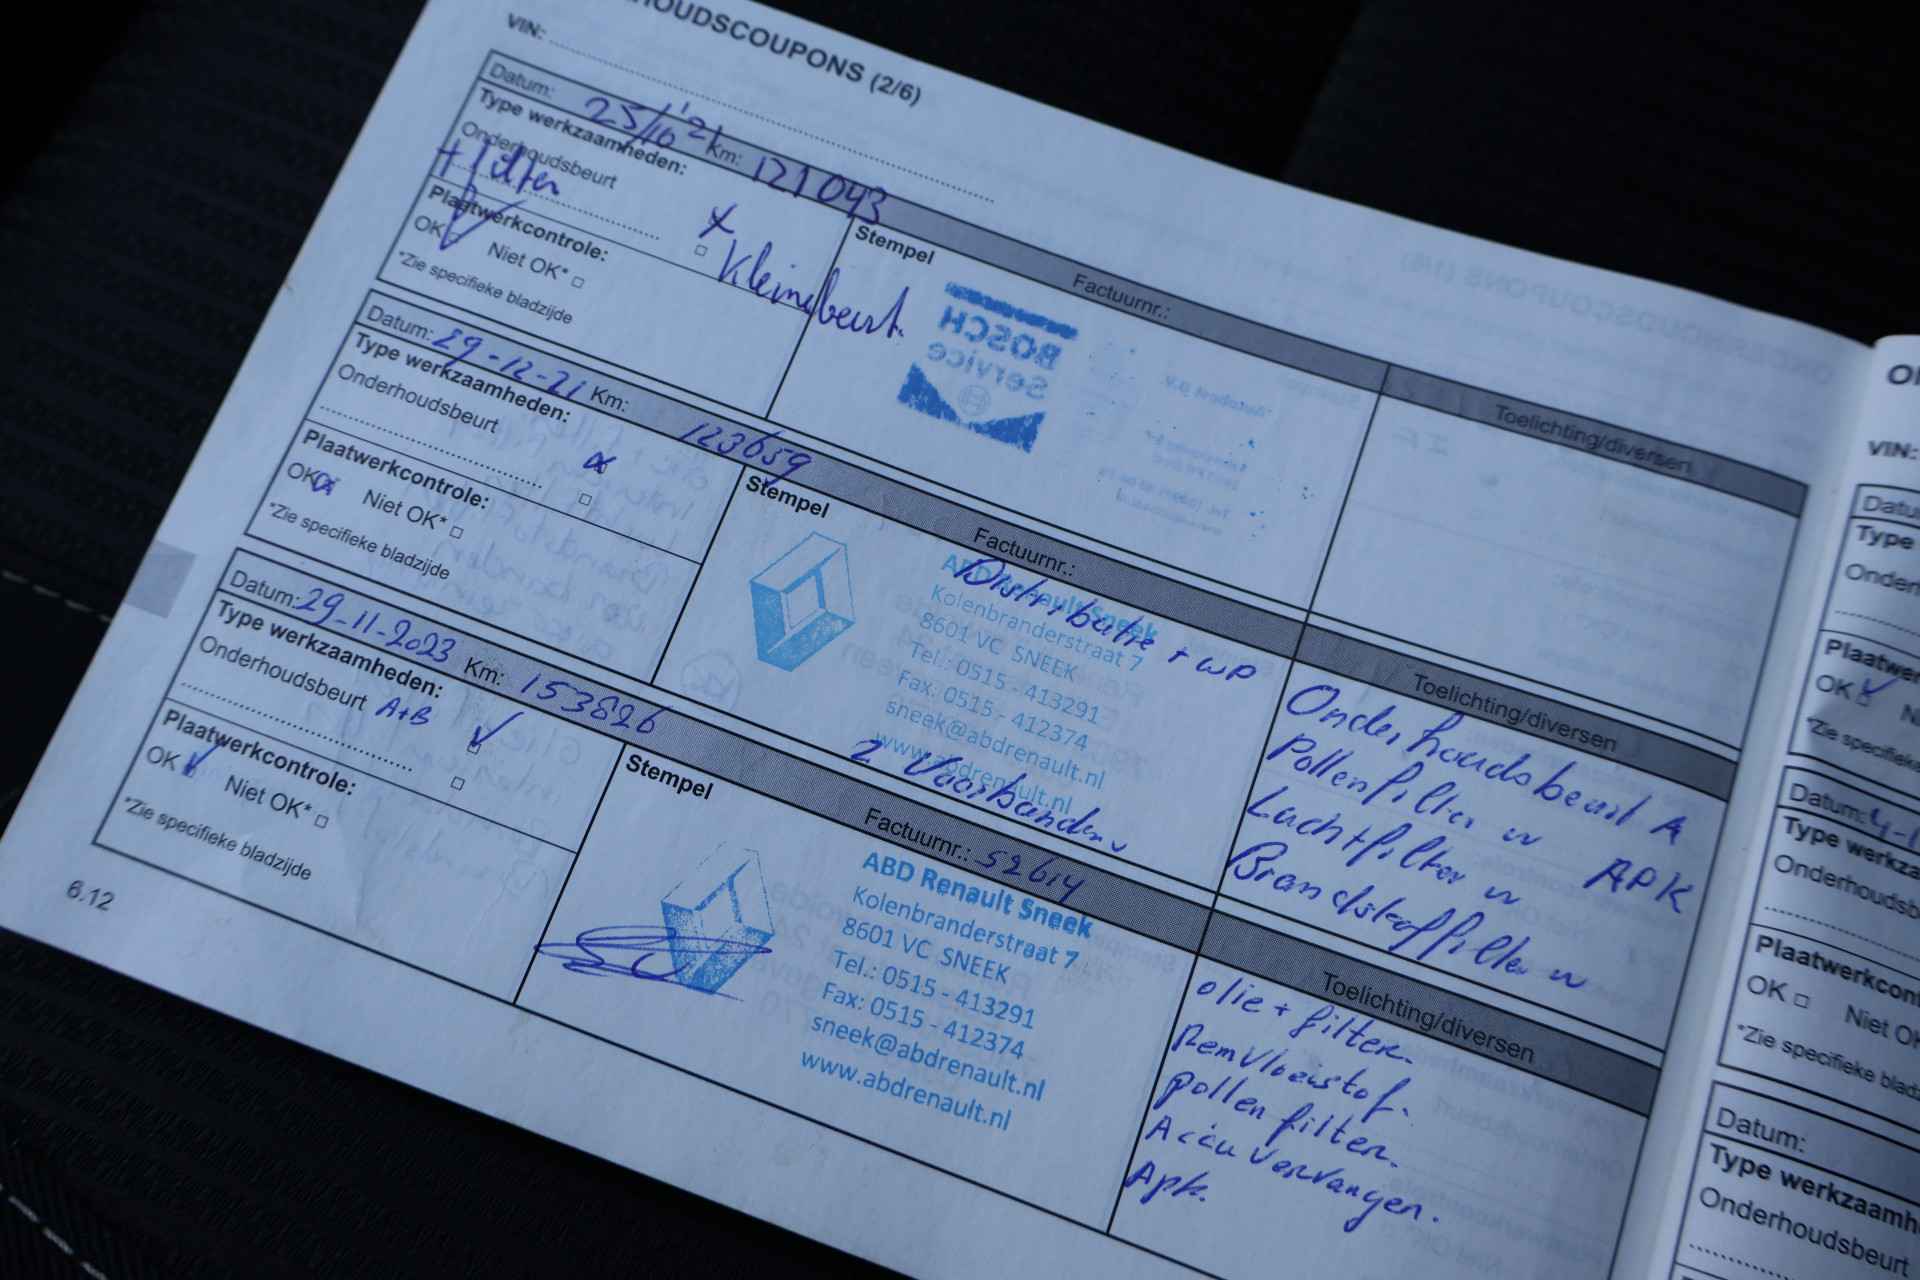 HOUDSCOUPONS (2/6)
VIN:
Datum: 25/10 '21 Km: 121043
Type werkzaamheden:
Onderhoudsbeurt
+ filter
Kleine beurt.
Plaatwerkcontrole:
OK Niet OK*
*Zie specifieke bladzijde
Stempel
Factuurnr.:
BOSCH
Service
Toelichting/diversen
Datum: 29-12-21 Km: 123659
Type werkzaamheden:
Onderhoudsbeurt
Plaatwerkcontrole:
OK Niet OK*
*Zie specifieke bladzijde
Stempel
Factuurnr.:
ABD Renault Sneek
Distributie + WP
Kolenbranderstraat 7
8601 VC SNEEK
Tel.: 0515 - 413291
Fax: 0515 - 412374
sneek@abdrenault.nl
www.abdrenault.nl
2 Voorbanden
Toelichting/diversen
Onderhoudsbeurt A
Pollenfilter
APK
Luchtfilter
Brandstoffilter
Datum: 29-11-2023 Km: 153826
Type werkzaamheden:
Onderhoudsbeurt A+B
Plaatwerkcontrole:
OK Niet OK*
*Zie specifieke bladzijde
Stempel
Factuurnr.: 52614
ABD Renault Sneek
Kolenbranderstraat 7
8601 VC SNEEK
Tel.: 0515 - 413291
Fax: 0515 - 412374
sneek@abdrenault.nl
www.abdrenault.nl
Toelichting/diversen
olie + filter.
Remvloeistof.
pollen filter.
Accu Vervangen.
Apk.
6.12
VIN:
Datu
Type
Onderh
Plaatwer
OK Ni
*Zie specifieke
Datum: 4-1
Type werkza
Onderhoudsb
Plaatwerkcon
OK Niet OK
*Zie specifieke bladz
Datum:
Type werkzaamh
Onderhoudsbeurt